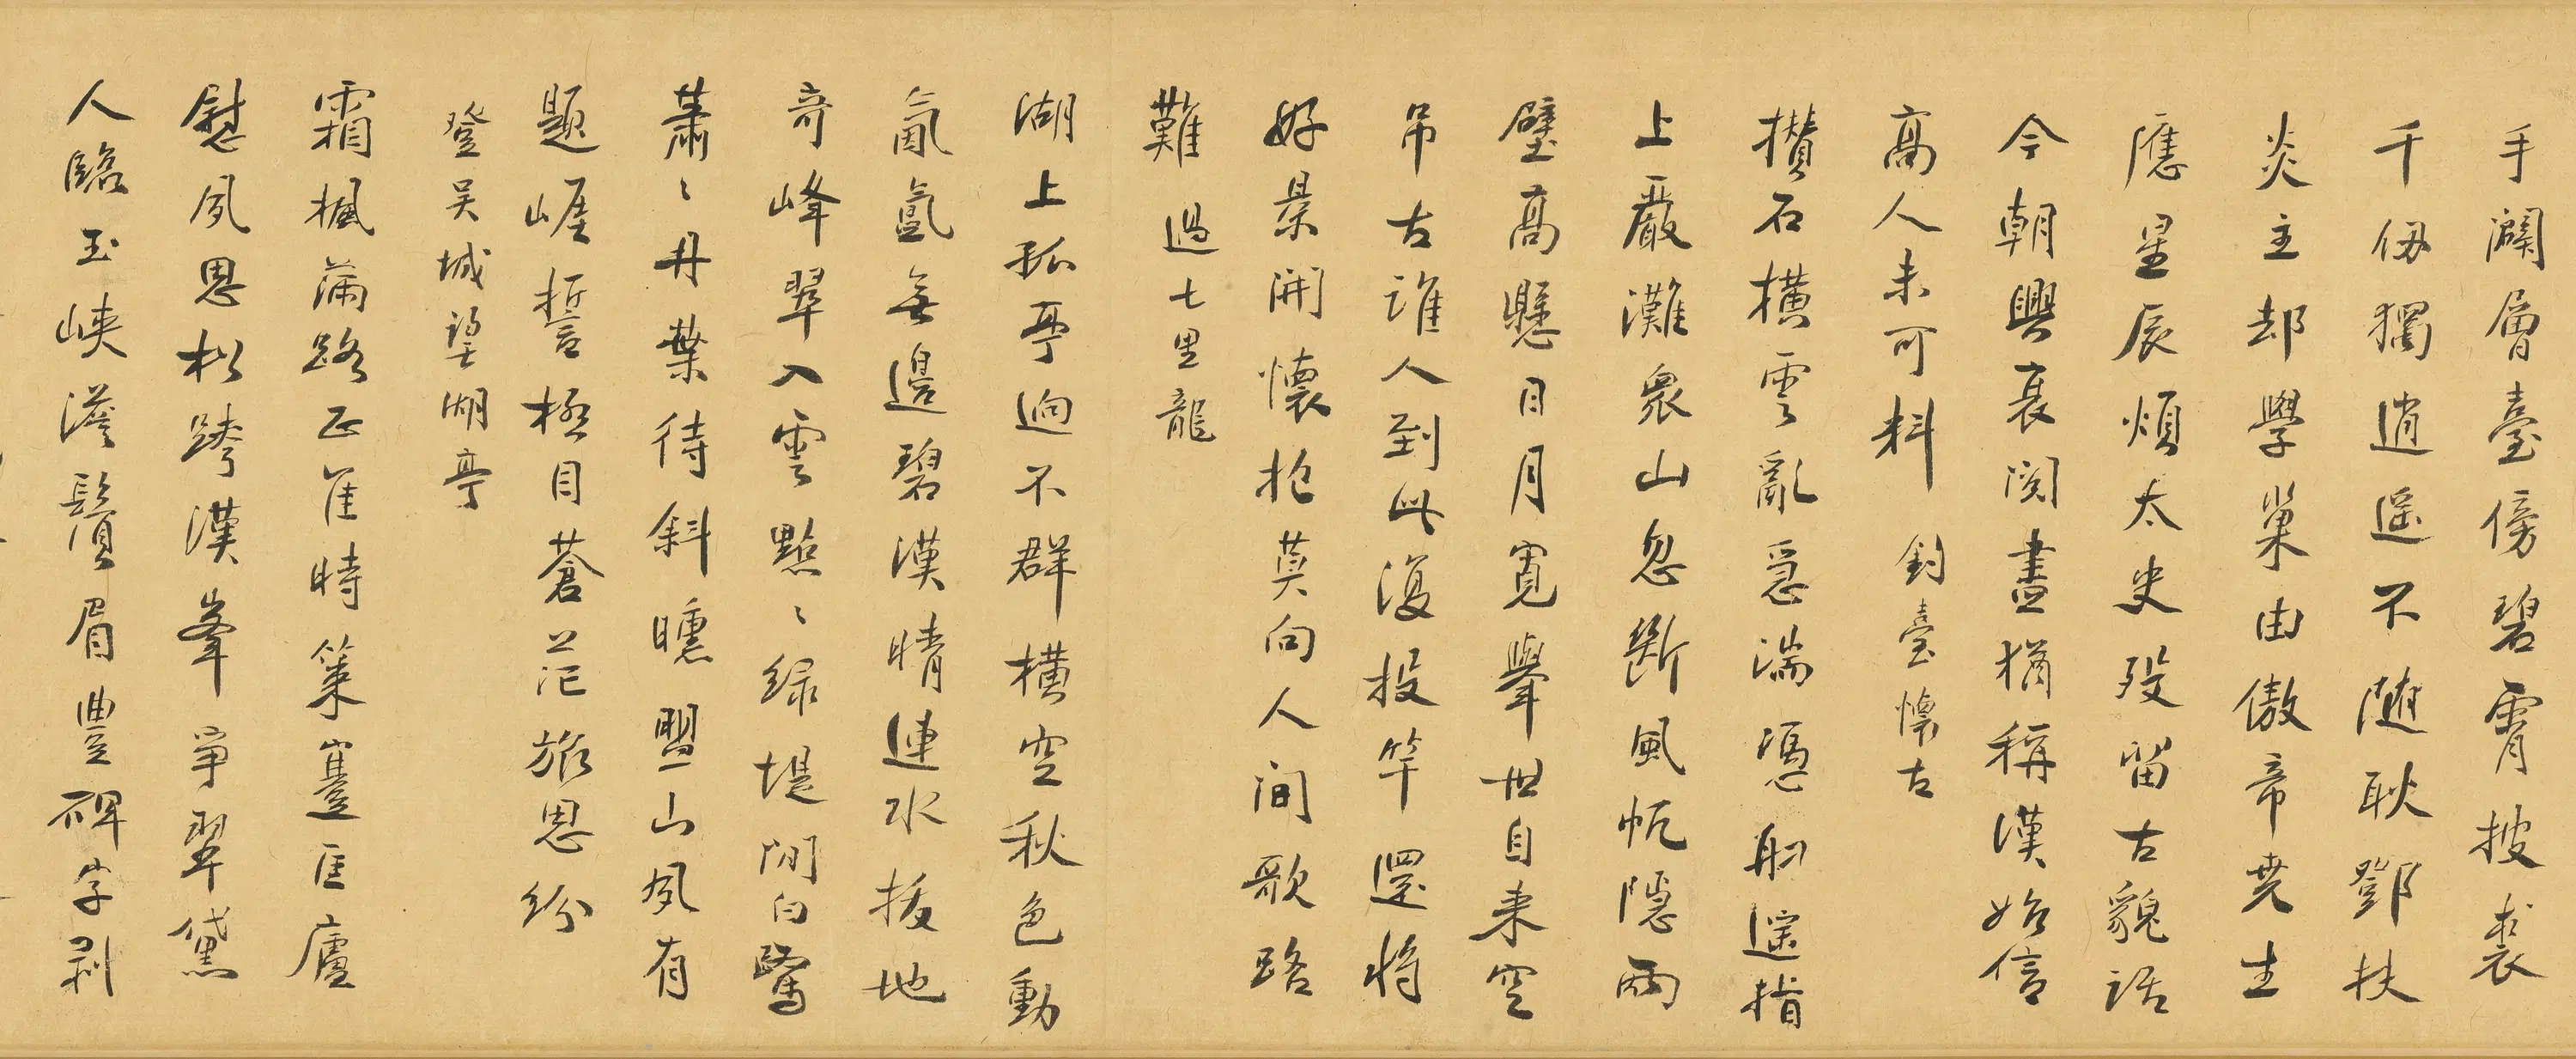 手闢層臺傍碧霄披裘
千仭獨逍遙不隨耿鄧扶
炎主却學巢由傲帝堯主
應星辰煩太史歿留古貌話
今朝興衰閱盡猶稱漢始信
高人未可料 釣臺懷古
攢石橫雲亂惡湍憑舠遙指
上嚴灘眾山忽斷風帆隱兩
壁高懸日月寬舉世自來空
吊古誰人到此復投竿還將
好景開懷抱莫向人間歌路
難 過七里龍
湖上孤亭迥不群橫空秋色動
氤氳無邊碧漢晴連水拔地
奇峰翠入雲點〻綠堤閒白鷺
蕭〻丹葉待斜曛盟山夙有
題崖誓極目蒼茫旅思紛
登吳城望湖亭
霜楓滿路正隹時策蹇匡廬
慰夙思松跨漢峯爭翠黛
人臨玉峽澹鬚眉豐碑字剥